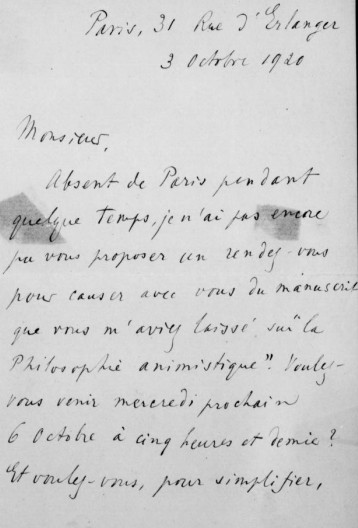 Paris, 31 Rue d'Erlanger
3 Octobre 1920
Monsieur,
Absent de Paris pendant
quelque temps, je n'ai pas encore
pu vous proposer un rendez-vous
pour causer avec vous du manuscrit
que vous m'aviez laissé sur "la
Philosophie animistique". Voulez-
vous venir mercredi prochain
6 Octobre à cinq heures et demie?
Et voulez-vous, pour simplifier,